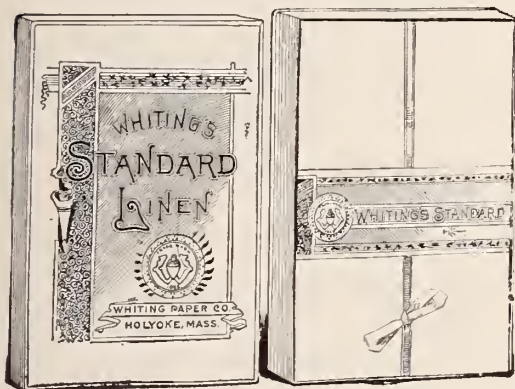 WHITING'S
STANDARD
LINEN
WHITING PAPER CO.
HOLYOKE, MASS.
WHITING'S STANDARD